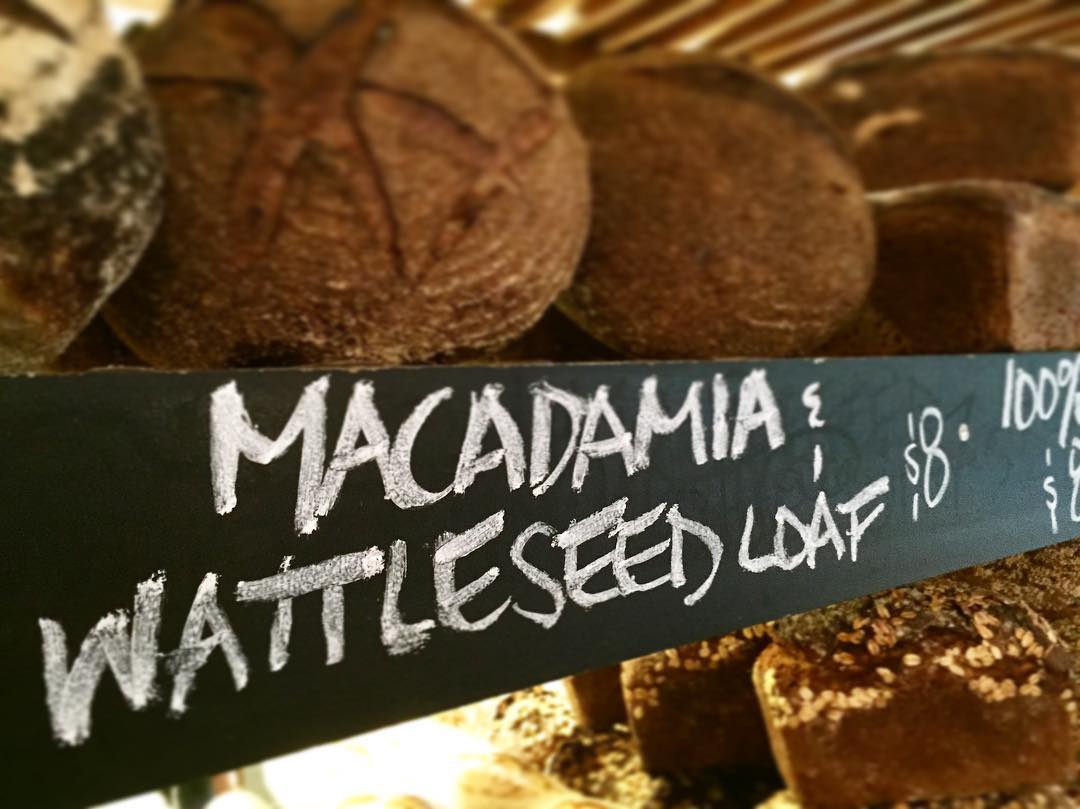 MACADAMIA &
WATTLESEED LOAF $8.
100%